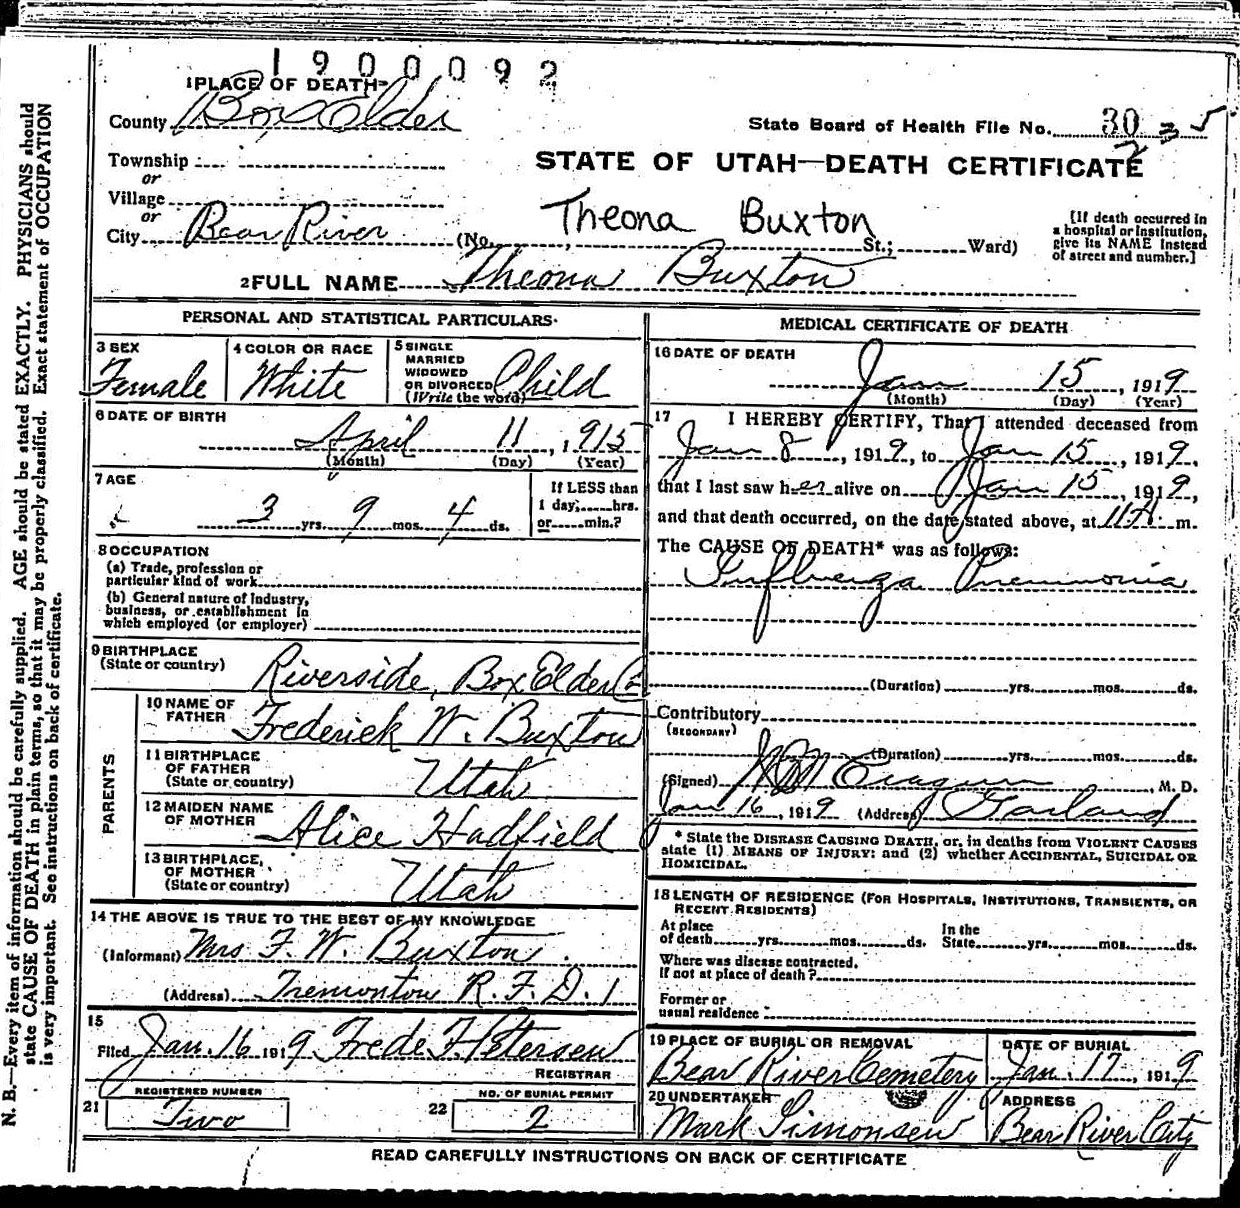 1900092
1 PLACE OF DEATH
County Box Elder
State Board of Health File No. 30
2 = 5
Township
or
STATE OF UTAH—DEATH CERTIFICATE
Village
or
Theona Buxton
City Bear River (No. , St.; Ward)
[If death occurred in
a hospital or institution,
give its NAME instead
of street and number.]
2 FULL NAME Theona Buxton
PERSONAL AND STATISTICAL PARTICULARS
3 SEX
Female
4 COLOR OR RACE
White
5 SINGLE
MARRIED
WIDOWED
OR DIVORCED
(Write the word)
Child
6 DATE OF BIRTH
April 11, 1915
(Month) (Day) (Year)
7 AGE
3 yrs. 9 mos. 4 ds.
If LESS than
1 day, hrs.
or min.?
8 OCCUPATION
(a) Trade, profession or
particular kind of work
(b) General nature of Industry,
business, or establishment in
which employed (or employer)
9 BIRTHPLACE
(State or country) Riverside, Box Elder Co
PARENTS
10 NAME OF
FATHER Frederick W. Buxton
11 BIRTHPLACE
OF FATHER
(State or country) Utah
12 MAIDEN NAME
OF MOTHER Alice Hadfield
13 BIRTHPLACE
OF MOTHER
(State or country) Utah
14 THE ABOVE IS TRUE TO THE BEST OF MY KNOWLEDGE
(Informant) Mrs F. W. Buxton
(Address) Tremonton R.F.D. 1
15
Filed Jan. 16 1919 Frede F. Petersen
REGISTRAR
REGISTERED NUMBER
21 Two
NO. OF BURIAL PERMIT
22 2
MEDICAL CERTIFICATE OF DEATH
16 DATE OF DEATH
Jan 15, 1919
(Month) (Day) (Year)
17 I HEREBY CERTIFY, That I attended deceased from
Jan 8, 1919, to Jan 15, 1919,
that I last saw her alive on Jan 15, 1919,
and that death occurred, on the date stated above, at 11 A m.
The CAUSE OF DEATH* was as follows:
Influenza Pneumonia
(Duration) yrs. mos. ds.
Contributory
(SECONDARY)
(Duration) yrs. mos. ds.
(Signed) Cragun, M. D.
Jan 16, 1919 (Address) Garland
* State the DISEASE CAUSING DEATH, or, in deaths from VIOLENT CAUSES
state (1) MEANS OF INJURY; and (2) whether ACCIDENTAL, SUICIDAL OR
HOMICIDAL.
18 LENGTH OF RESIDENCE (FOR HOSPITALS, INSTITUTIONS, TRANSIENTS, OR
RECENT RESIDENTS)
At place
of death yrs. mos. ds.
In the
State yrs. mos. ds.
Where was disease contracted,
If not at place of death?
Former or
usual residence
19 PLACE OF BURIAL OR REMOVAL
Bear River Cemetery
DATE OF BURIAL
Jan. 17, 1919
20 UNDERTAKER
Mark Simonsen
ADDRESS
Bear River City
READ CAREFULLY INSTRUCTIONS ON BACK OF CERTIFICATE
N. B.—Every item of information should be carefully supplied. AGE should be stated EXACTLY. PHYSICIANS should
state CAUSE OF DEATH in plain terms, so that it may be properly classified. Exact statement of OCCUPATION
is very important. See instructions on back of certificate.